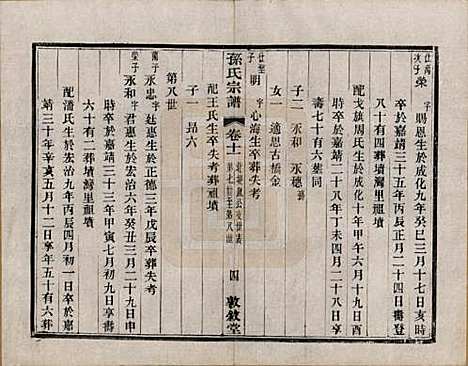 仕萬次子
榮 字賜恩生於成化九年癸巳三月十七日亥時
卒於嘉靖三十五年丙辰四月二十二日壽登
八十有四葬墳灣里祖墳
配戈旗周氏生於成化十年甲午六月十九日酉
時卒於嘉靖二十八年丁未四月二十八日享
壽七十有六葉同
子二 永和 永穗
女一 適思古橋金
仕聖子
明 字心海生卒葬失考
配王氏生卒失考葬祖墳
子一 昂六
孫氏宗譜
卷十一
四
敦敘堂
第八世
蘭子
永忠 字廷惠生於正德三年戊辰卒葬失考
榮子
永和 字君惠生於宏治六年癸丑三月二十九日申
時卒於嘉靖三十三年甲寅七月初九日享壽
六十有二葬墳灣里祖墳
配潘氏生於宏治九年丙辰四月初一日卒於嘉
靖三十年辛亥五月十二日享年五十有六葬